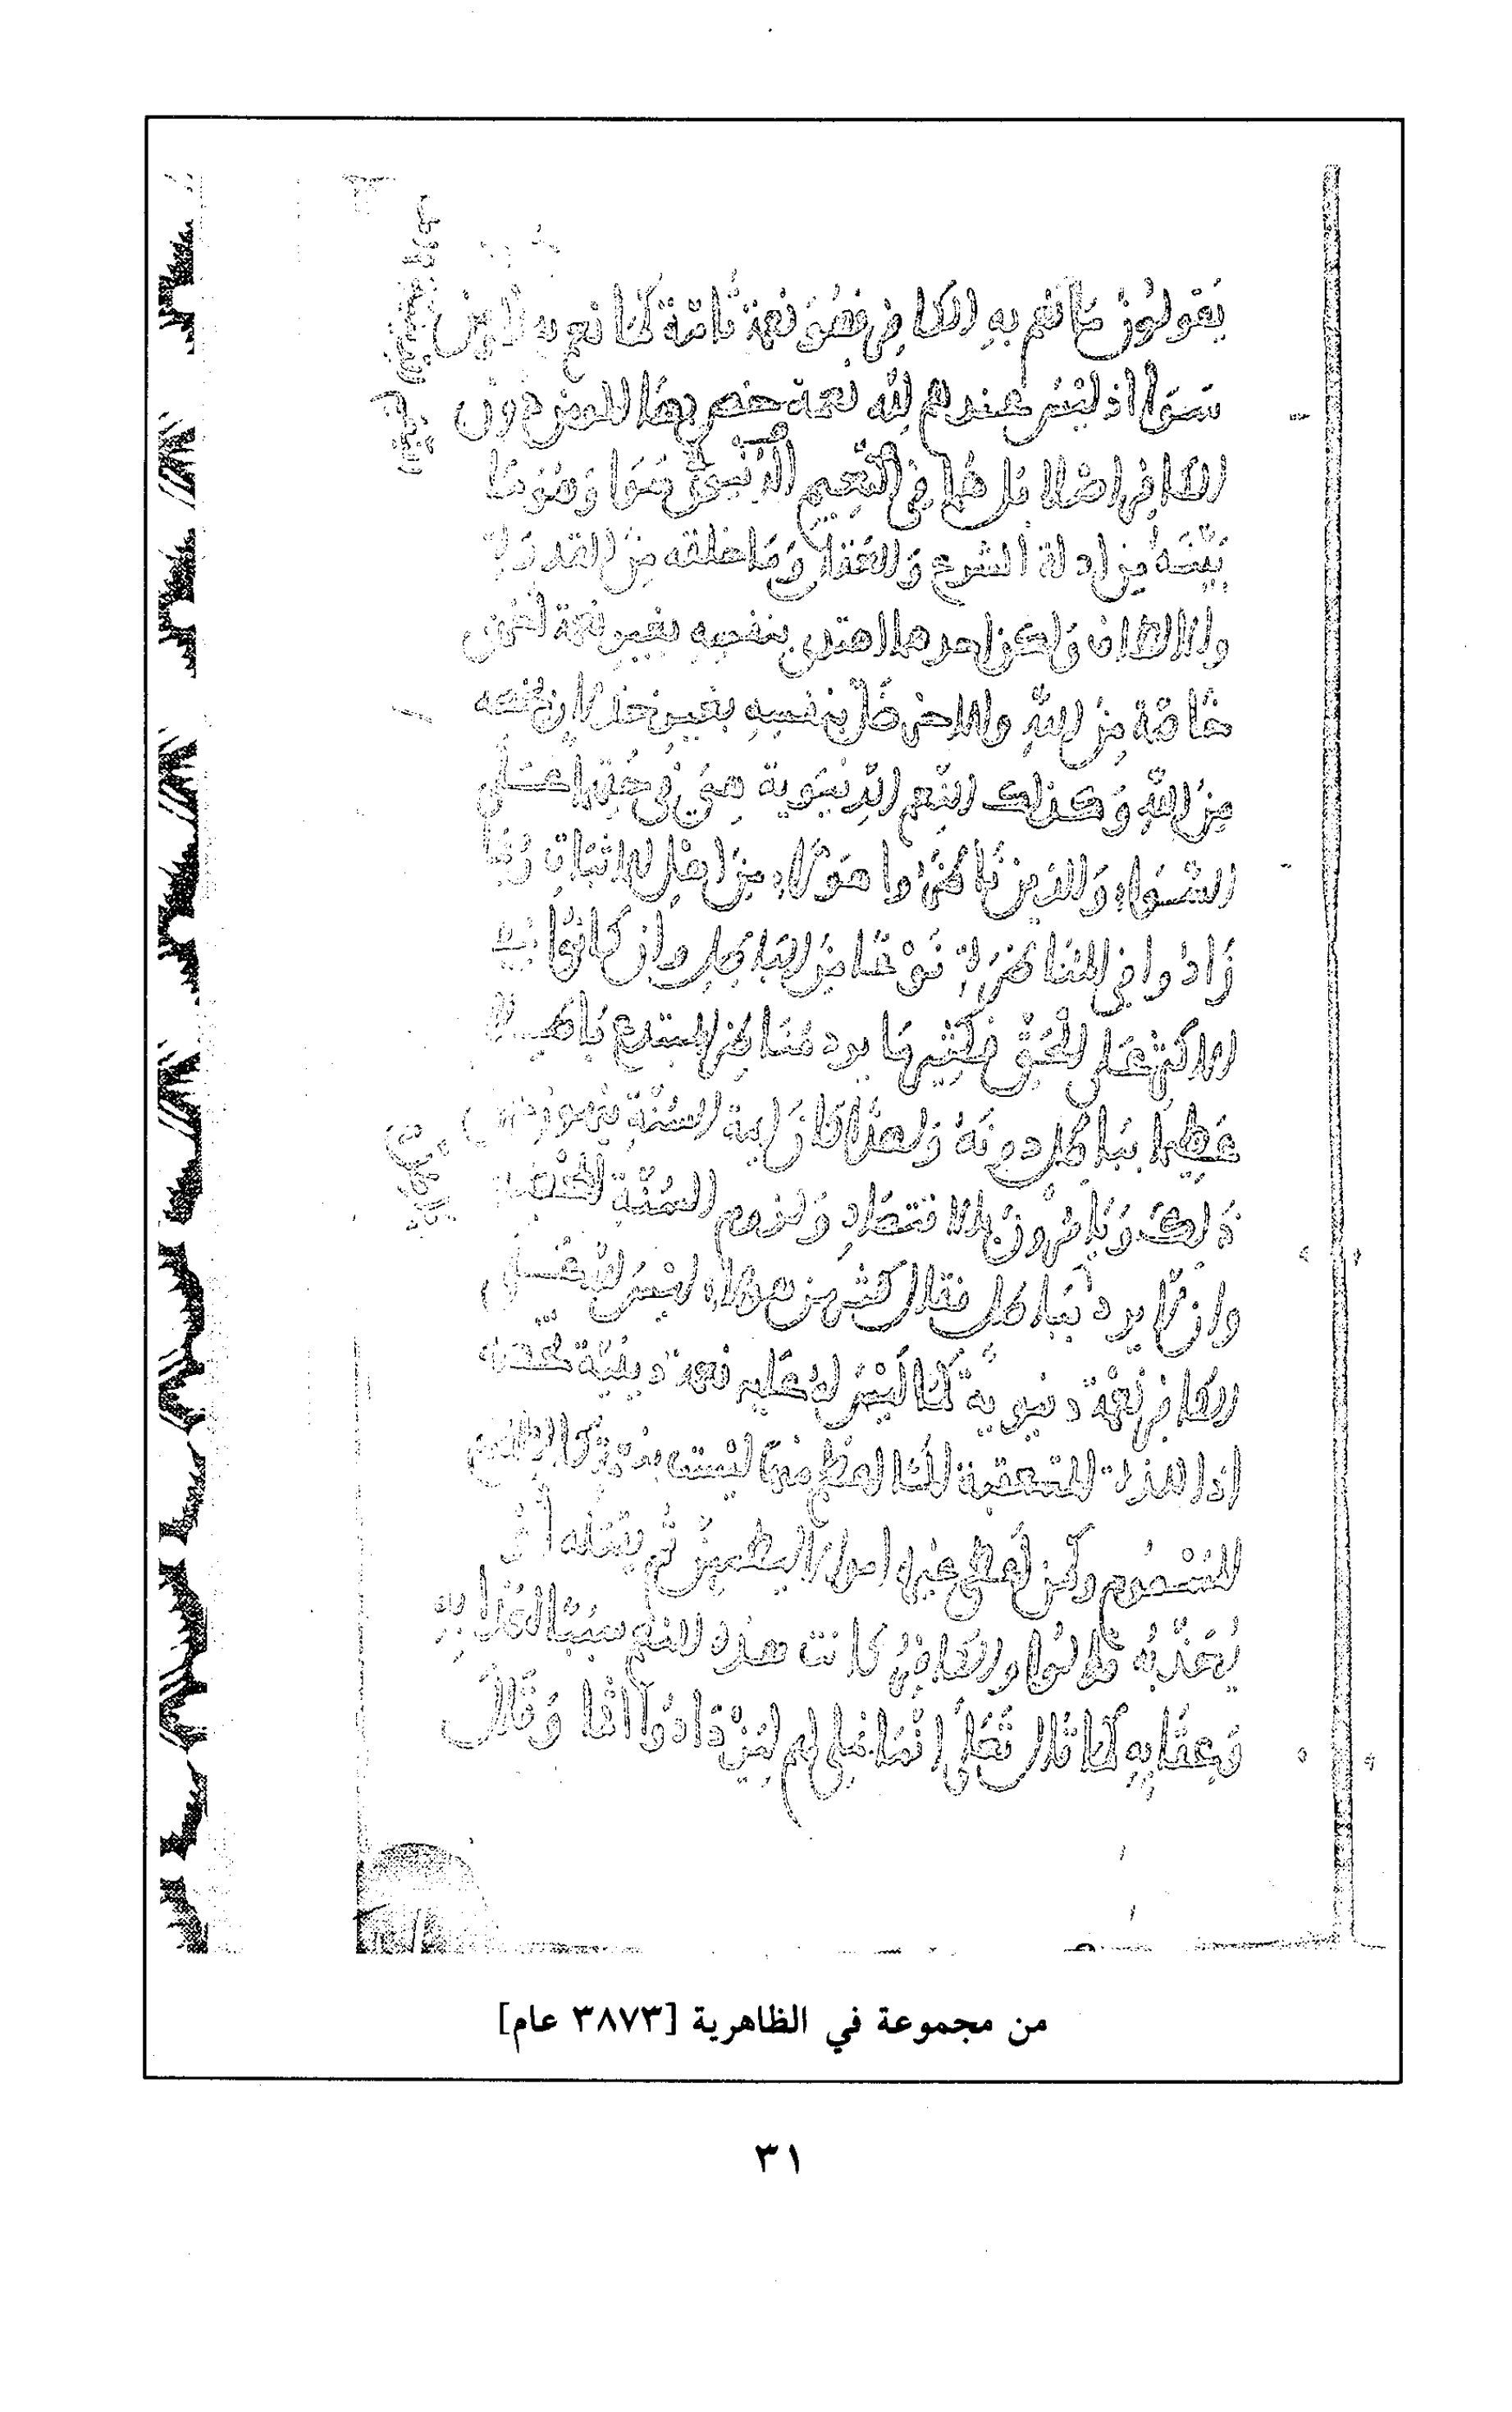 يقولون ما نعم به الكافر فهو نعمة تامة كما نعم به المؤمن
سوا اذ ليس عندهم لله نعمة خص بها المومن دون
الكافر اصلا بل هما في النعيم الدنيوي سوا وهو ما
بينه من ادلة الشرع والعقل وما خلقه من القدرة
والالطاف ولكن احدهما اهتدى بنفسه بغير نعمة اخرى
خاصة من الله والاخر ضل بنفسه بغير خذلان يخصه
من الله وكذلك النعم الدنيوية هي في حقهما على
السواء والذين ناظروا هولاء من اهل الاثبات ربما
زادوا في المناظرة نوعا من الباطل وان كانوا في
الاكثر على الحق فكثيرا ما يرد مناظر المبتدع باطلا
عظيما بباطل دونه ولهذا كان ايمة السنة ينهون عن
ذلك ويامرون بالاقتصاد ولزوم السنة المحضة
وان لا يرد باطل بباطل فقال كثير من هولاء ليس لله على
الكافر نعمة دنيوية كما ليس له عليه نعمة دينية تخصه
اذ اللذة المتعقبة الما اعظم منها ليست بنعمة كالطعام
المسموم وكمن اعطى غيره اموالا ليطمين ثم يقتله او
يعذبه قالوا والكافر كانت هذه النعم سببا لعذابه
وعقابه كما قال تعالى انما نملي لهم ليزدادوا اثما وقال
من مجموعة في الظاهرية [٣٨٧٣ عام]
٣١